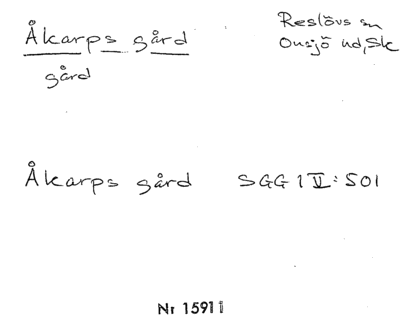 Åkarps gård
Reslövs sn
Onsjö hd, Sk
gård
Åkarps gård SGG 1 V: 501
Nr 1591 i